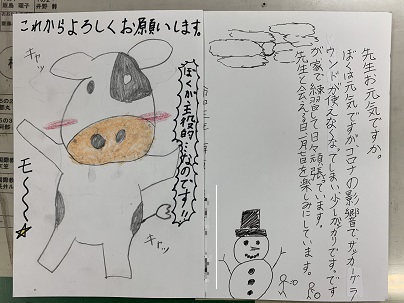 これからよろしくお願いします。
キャッ
ぼくが主役的…なのです!!
モ〜〜〜☆
キャッ
先生お元気ですか。
ぼくは元気ですが、コロナの影響でサッカーグラ
ウンドが使えなくなってしまい少しがっかりです。です
が家で練習して日々頑張っています。
先生と会える日一月七日を楽しみにしています。